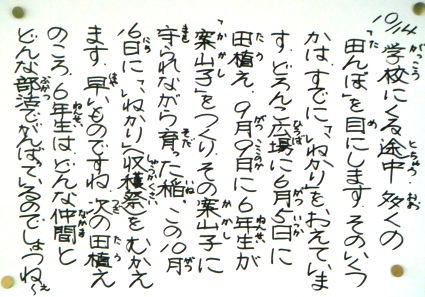 10/14 学校にくる途中、多くの
「田んぼ」を目にします。そのいくつ
かは、すでに「いねかり」をおえていま
す。どろんこ広場に6月5日に
田植え、9月9日に6年生が
「案山子」をつくり、その案山子に
守られながら育った稲。この10月
16日に「いねかり」(収穫祭)をむかえ
ます。早いものですね。次の田植え
のころ、6年生はどんな仲間と
どんな部活でがんばっているのでしょうね〜